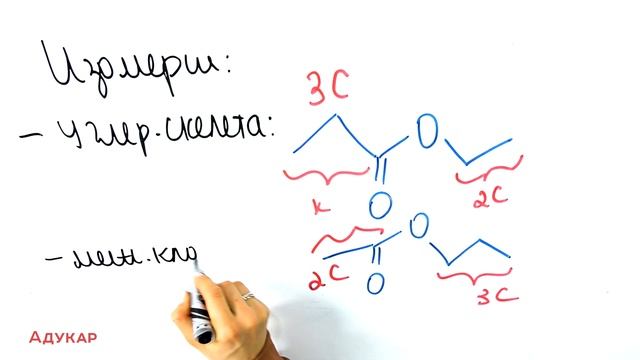 Изомерия:
3C
- углер. скелета:
O
O
к
2C
- меж. кла
O
2C
O
3C
АДУКАР